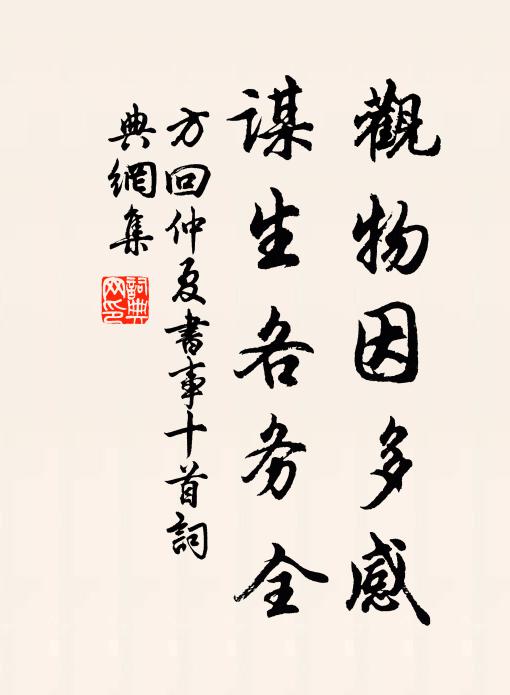 觀物因多感
謀生各务全
方回仲夏書事十首詞
典網集
詞典
网印